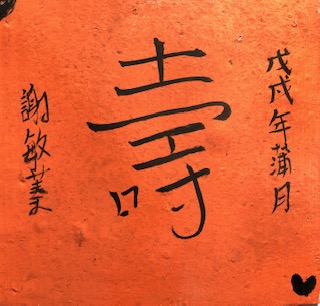 戊戌年蒲月
壽
謝敏業